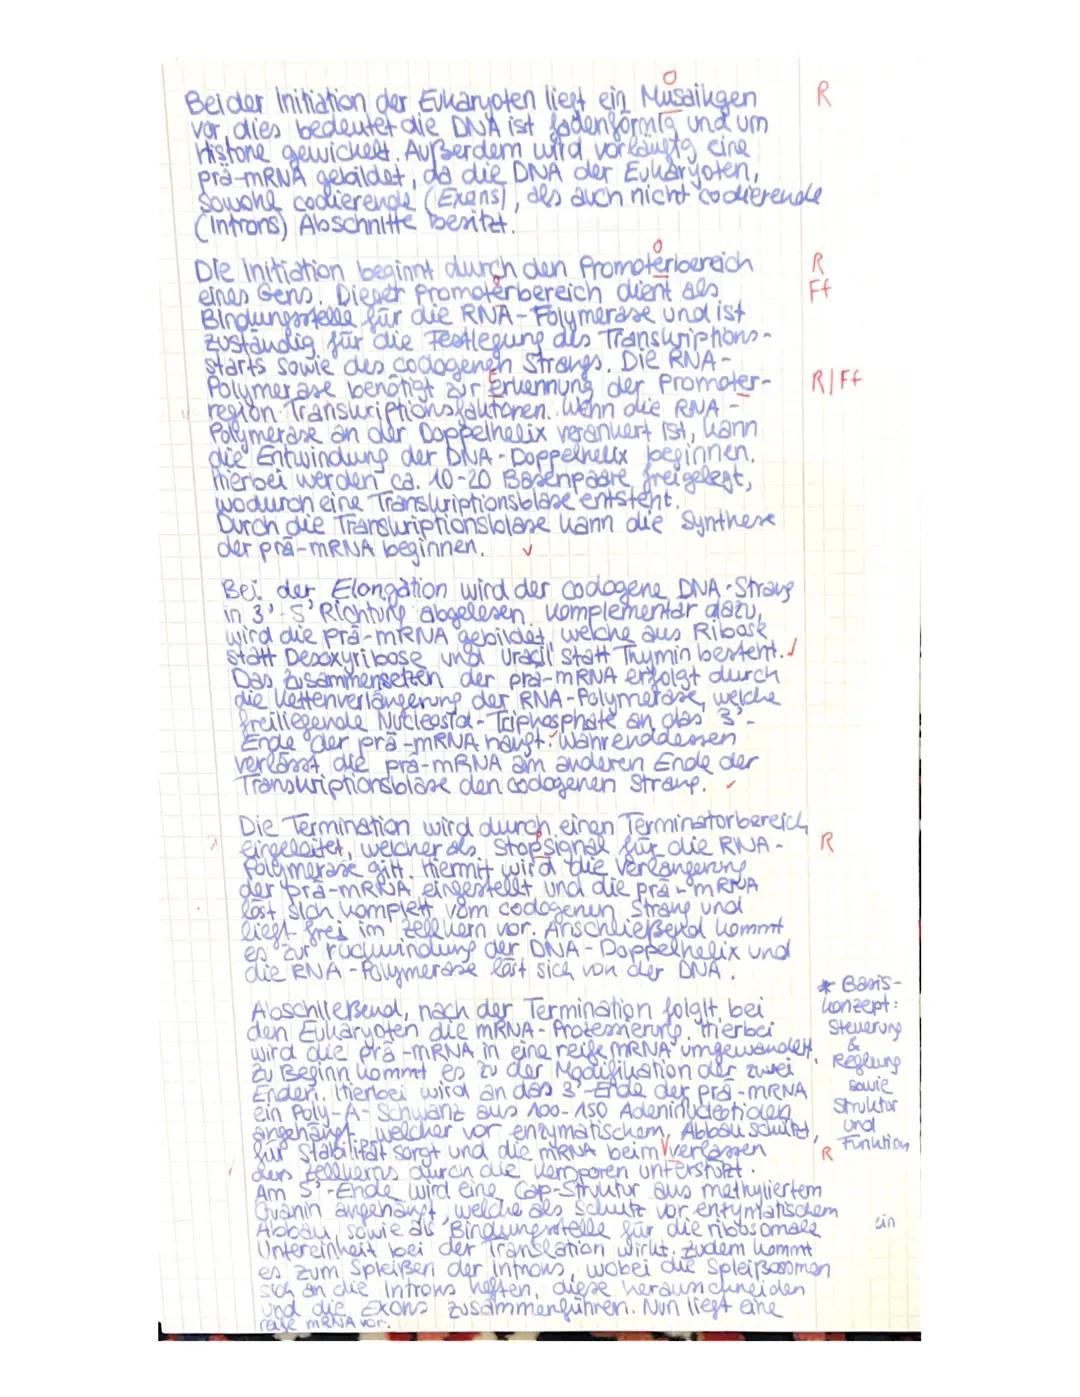 Bei der Initiation der Eukaryoten liegt ein Musaikgen
o
R
vor, dies bedeutet die DNA ist fadenförmig und um
Histone gewickelt. Außerdem wird vorläufig eine
prä-mRNA gebildet, da die DNA der Eukaryoten,
sowohl codierende (Exons), als auch nicht codierende
(Introns) Abschnitte besitzt.
Die Initiation beginnt durch den Promoterbereich
o
R
eines Gens. Dieser Promoterbereich dient als
Ff
Bindungsstelle für die RNA-Polymerase und ist
zuständig für die Festlegung des Transkriptions-
starts sowie des codogenen Strangs. Die RNA-
Polymerase benötigt zur Erkennung der Promoter-
R/Ff
region Transkriptionsfaktoren. Wenn die RNA-
Polymerase an der Doppelhelix verankert ist, kann
die Entwindung der DNA-Doppelhelix beginnen.
Hierbei werden ca. 10-20 Basenpaare freigelegt,
wodurch eine Transkriptionsblase entsteht.
Durch die Transkriptionsblase kann die Synthese
der prä-mRNA beginnen. ✓
Bei der Elongation wird der codogene DNA-Strang
in 3'-5' Richtung abgelesen. Komplementär dazu,
wird die prä-mRNA gebildet, welche aus Ribose
statt Desoxyribose und Uracil statt Thymin besteht. ✓
Das Zusammensetzen der prä-mRNA erfolgt durch
die Kettenverlängerung der RNA-Polymerase, welche
freiliegende Nucleosid-Triphosphate an das 3'-
Ende der prä-mRNA hängt. Währenddessen
verlässt die prä-mRNA am anderen Ende der
Transkriptionsblase den codogenen Strang. ✓
Die Termination wird durch einen Terminatorbereich
eingeleitet, welcher als Stopsignal für die RNA-
R
Polymerase gilt. Hiermit wird die Verlängerung
der prä-mRNA eingestellt und die prä-mRNA
löst sich komplett vom codogenen Strang und
liegt frei im Zellkern vor. Anschließend kommt
es zur rückwindung der DNA-Doppelhelix und
die RNA-Polymerase löst sich von der DNA.
Abschließend, nach der Termination folgt, bei
den Eukaryoten die mRNA-Prozessierung. Hierbei
wird die prä-mRNA in eine reife mRNA umgewandelt.
Zu Beginn kommt es zu der Modifikation der zwei
Enden. Hierbei wird an das 3'-Ende der prä-mRNA
ein Poly-A-Schwanz aus 100-150 Adeninnucleotiden
angehängt, welcher vor enzymatischem Abbau schützt,
für Stabilität sorgt und die mRNA beim verlassen
R
des Zellkerns durch die Kernporen unterstützt.
Am 5'-Ende wird eine Cap-Struktur aus methyliertem
Guanin angehängt, welche als Schutz vor enzymatischem
Abbau, sowie als Bindungsstelle für die ribosomale
Untereinheit bei der Translation wirkt. Zudem kommt
es zum Spleißen der Introns, wobei die Spleißosomen
sich an die Introns heften, diese herausschneiden
und die Exons zusammenführen. Nun liegt eine
reife mRNA vor.
* Basis-
konzept:
Steuerung
&
Reglung
sowie
Struktur
und
Funktion
ein